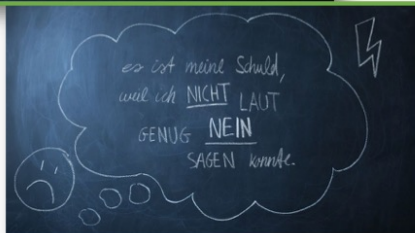 es ist meine Schuld,
weil ich NICHT LAUT
GENUG NEIN
SAGEN konnte.